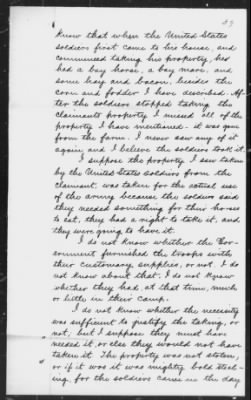 37
know that when the United States
soldiers first came to his house, and
commenced taking his property, he
had a bay horse, a bay mare, and
some hay and bacon, besides the
corn and fodder I have described. Af-
ter the soldiers stopped taking the
claimants property I missed all of the
property I have mentioned - it was gone
from the farm. I never saw any of it
again and I believe the soldiers took it.
I suppose the property I saw taken
by the United States soldiers from the
claimant, was taken for the actual use
of the army because the soldiers said
they needed something for their horses
to eat, they had a right to take it, and
they were going to have it.
I do not know whether the Gov-
ernment furnished the troops with
their customary supplies, or not. I do
not know about that. I do not know
whether they had, at that time, much
or little in their camp.
I do not know whether the necessity
was sufficient to justify the taking, or
not, but I suppose they must have
needed it, or else they would not have
taken it. The property was not stolen,
or if it was it was mighty bold steal-
ing, for the soldiers came in the day